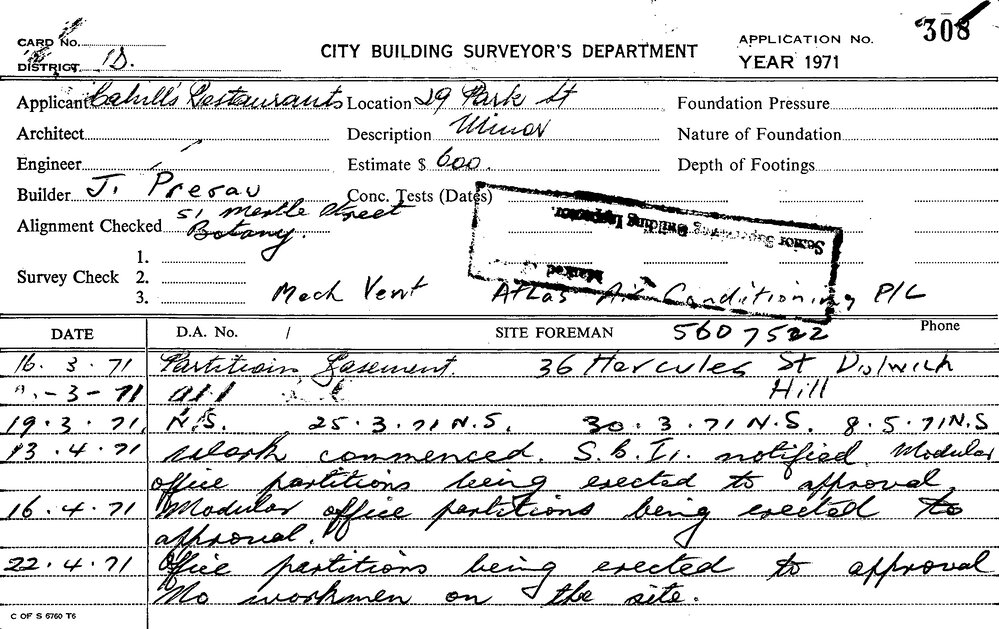 CARD No.
CITY BUILDING SURVEYOR'S DEPARTMENT
APPLICATION No. 308
DISTRICT D.
YEAR 1971
Applicant Cahill's Restaurants Location 29 Park St Foundation Pressure
Architect Description Minor Nature of Foundation
Engineer Estimate $ 600. Depth of Footings
Builder J. Presau Conc. Tests (Dates)
51 Mertle Street
Alignment Checked Botany.
Senior Supervising Building Inspector.
Marked
1.
Survey Check 2.
3. Mech Vent Atlas Air Conditioning P/L
DATE D.A. No. / SITE FOREMAN 560 7522 Phone
16.3.71 Partition Basement. 36 Hercules St Dulwich
-3-71 Hill
19.3.71. N.S. 25.3.71 N.S. 30.3.71 N.S. 8.5.71 N.S
13.4.71 Work commenced. S.B.I. notified Modular
office partitions being erected to approval.
16.4.71 Modular office partitions being erected to
approval.
22.4.71 Office partitions being erected to approval
No workmen on the site.
C OF S 6760 T6